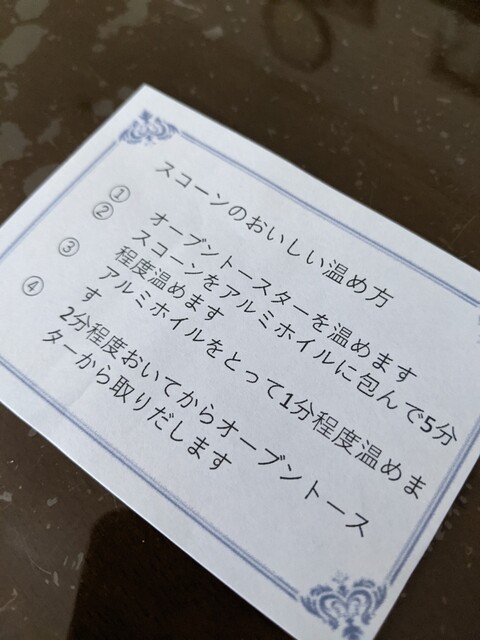 スコーンのおいしい温め方
① オーブントースターを温めます
② スコーンをアルミホイルに包んで5分
程度温めます
③ アルミホイルをとって1分程度温めま
す
④ 2分程度おいてからオーブントース
ターから取りだします